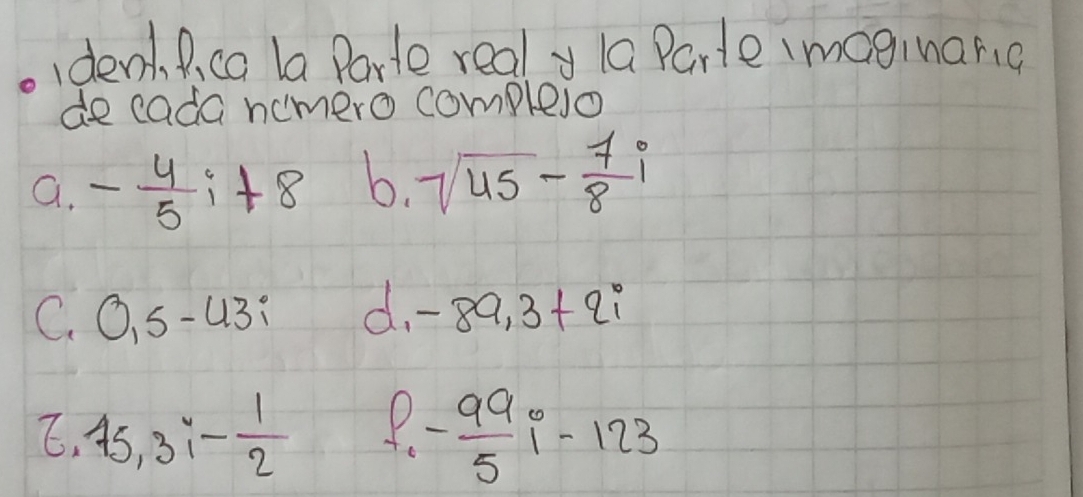 • identifica la Parte real y la Parte imaginaria
de cada número complejo
a. -4/5 i + 8 b. √45 - 7/8 i
c. 0,5 - 43i d. -89,3 + 2i
E. 15,3i - 1/2 f. -99/5 i - 123